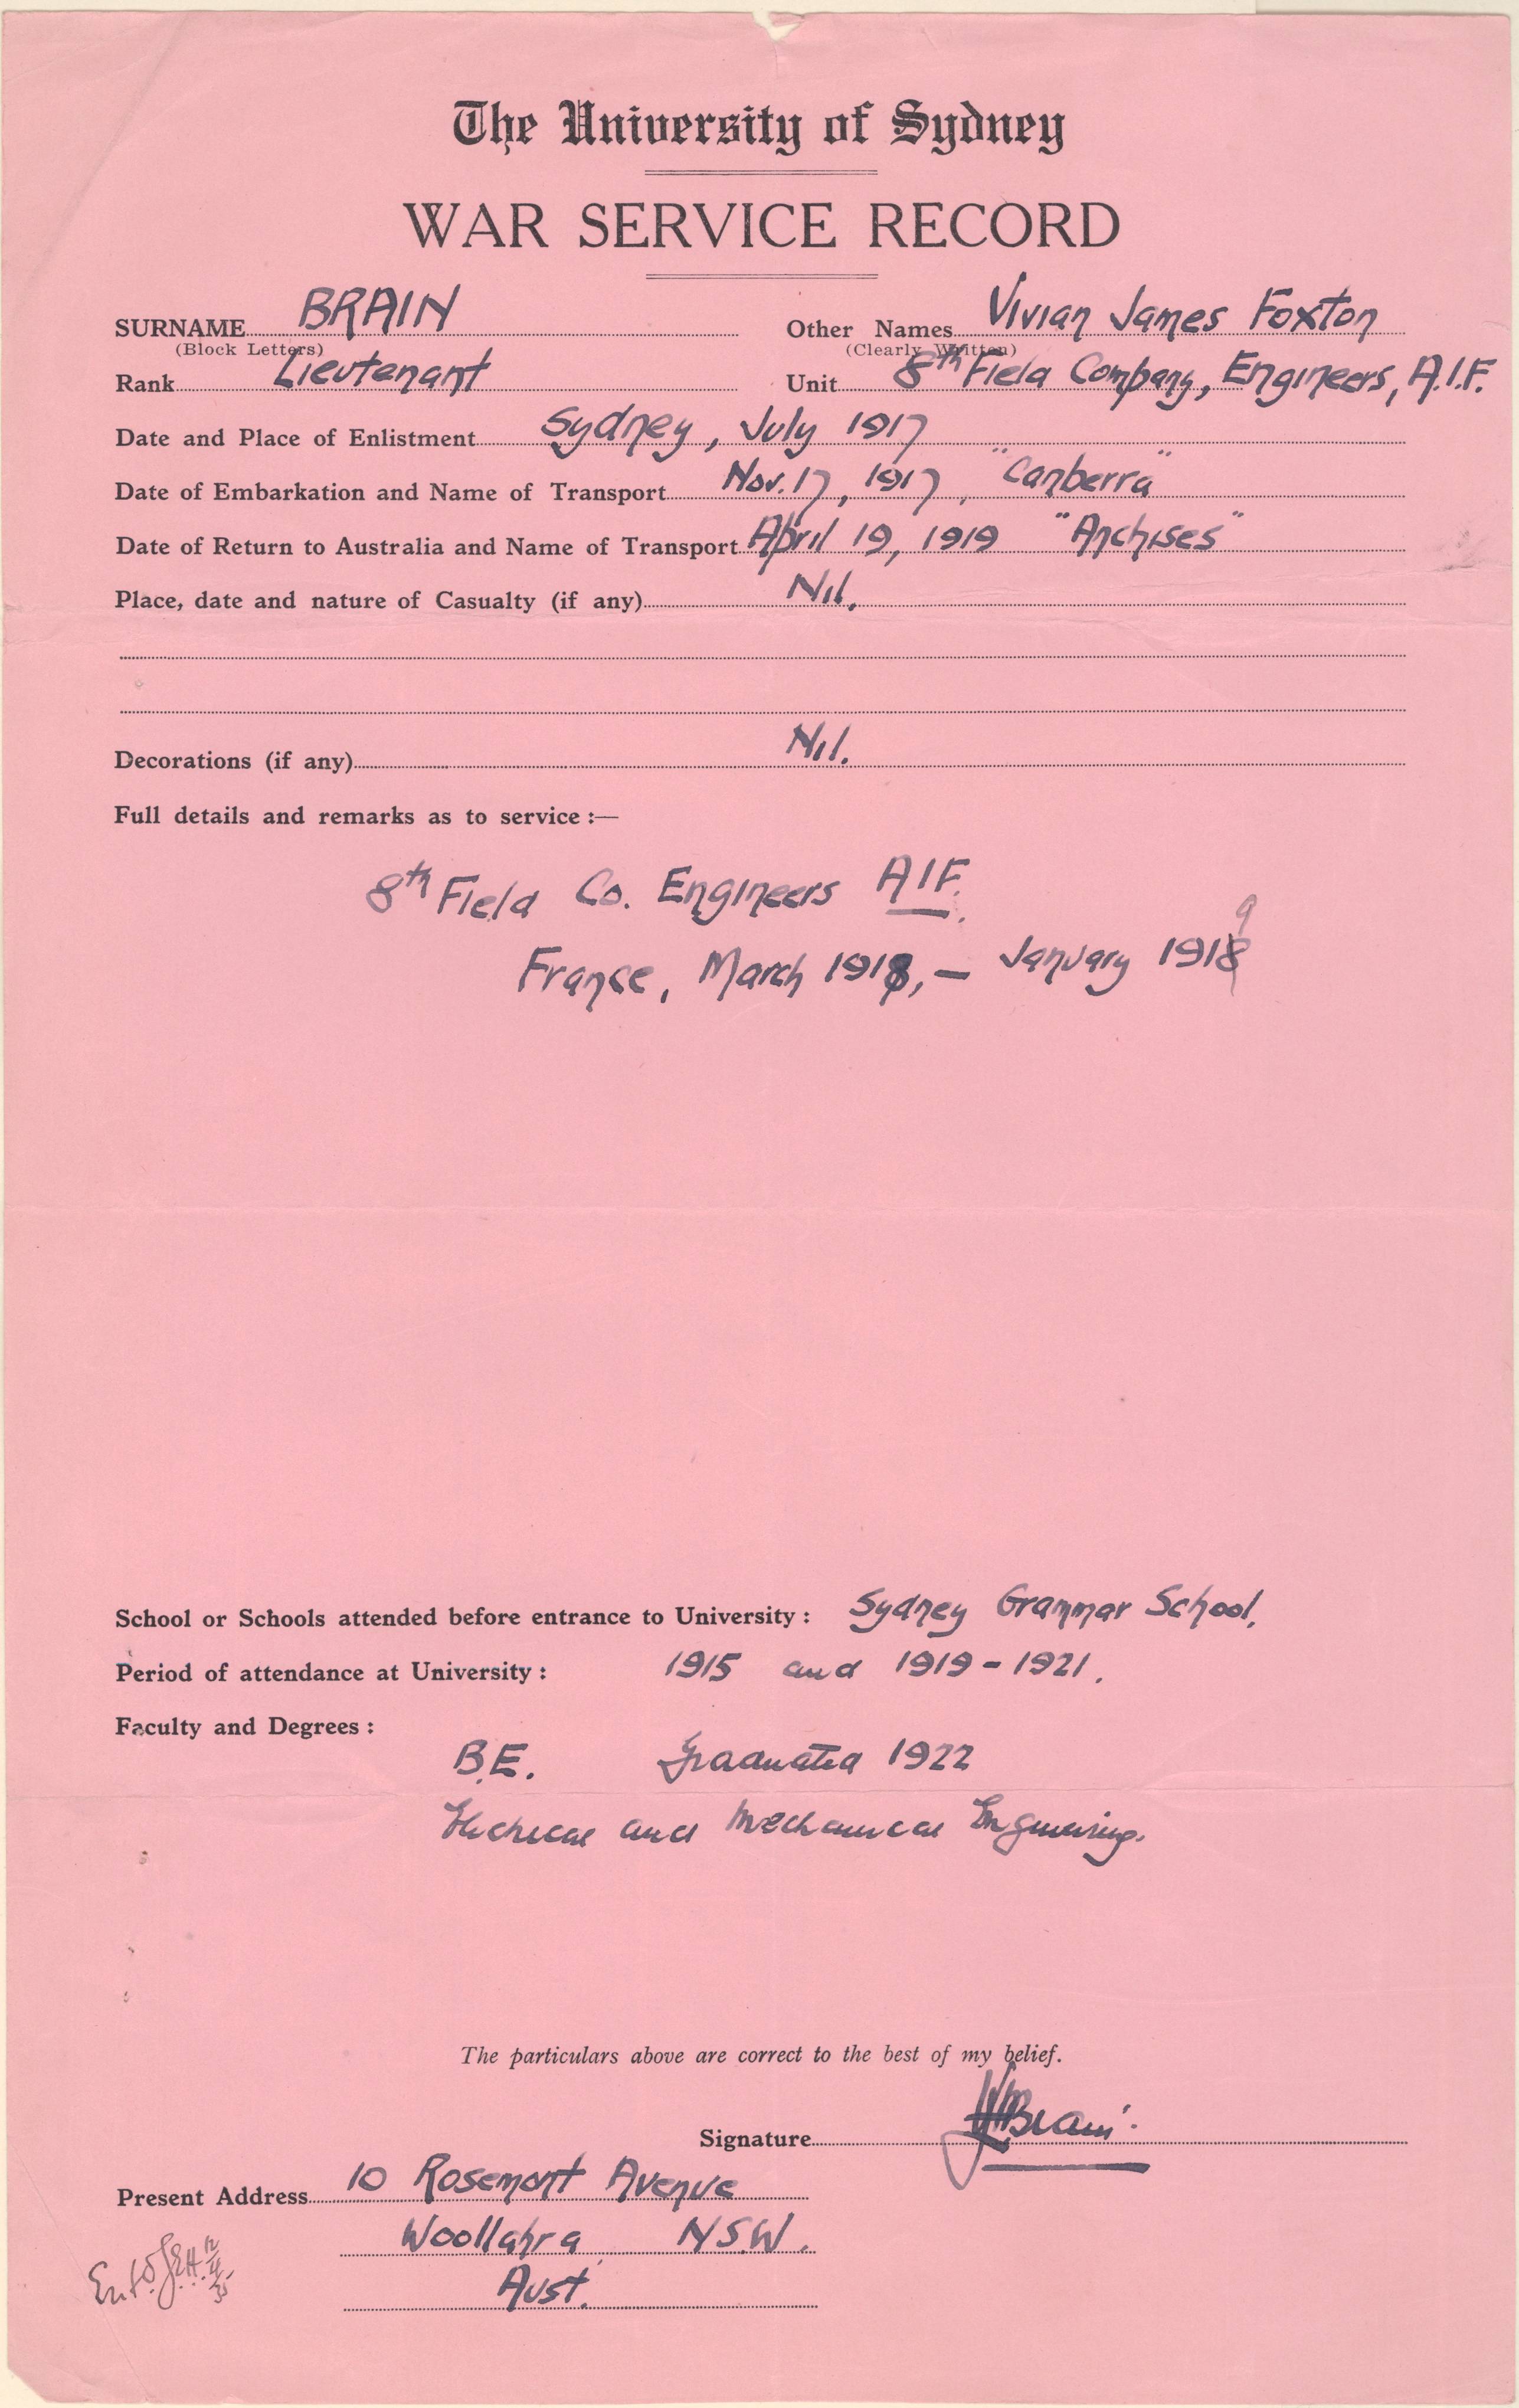 The University of Sydney
WAR SERVICE RECORD
SURNAME BRAIN Other Names Vivian James Foxton
(Block Letters) (Clearly Written)
Rank Lieutenant Unit 8th Field Company, Engineers, A.I.F.
Date and Place of Enlistment Sydney, July 1917
Date of Embarkation and Name of Transport Nov. 17, 1917, "Canberra"
Date of Return to Australia and Name of Transport April 19, 1919 "Anchises"
Place, date and nature of Casualty (if any) Nil.
Decorations (if any) Nil.
Full details and remarks as to service :—
8th Field Co. Engineers AIF.
9
France, March 1918, – January 1918
School or Schools attended before entrance to University : Sydney Grammar School.
Period of attendance at University : 1915 and 1919 - 1921.
Faculty and Degrees :
B.E. Graduated 1922
Electrical and Mechanical Engineering.
The particulars above are correct to the best of my belief.
Signature Brain.
Present Address 10 Rosemont Avenue
Woollahra N.S.W.
Aust.